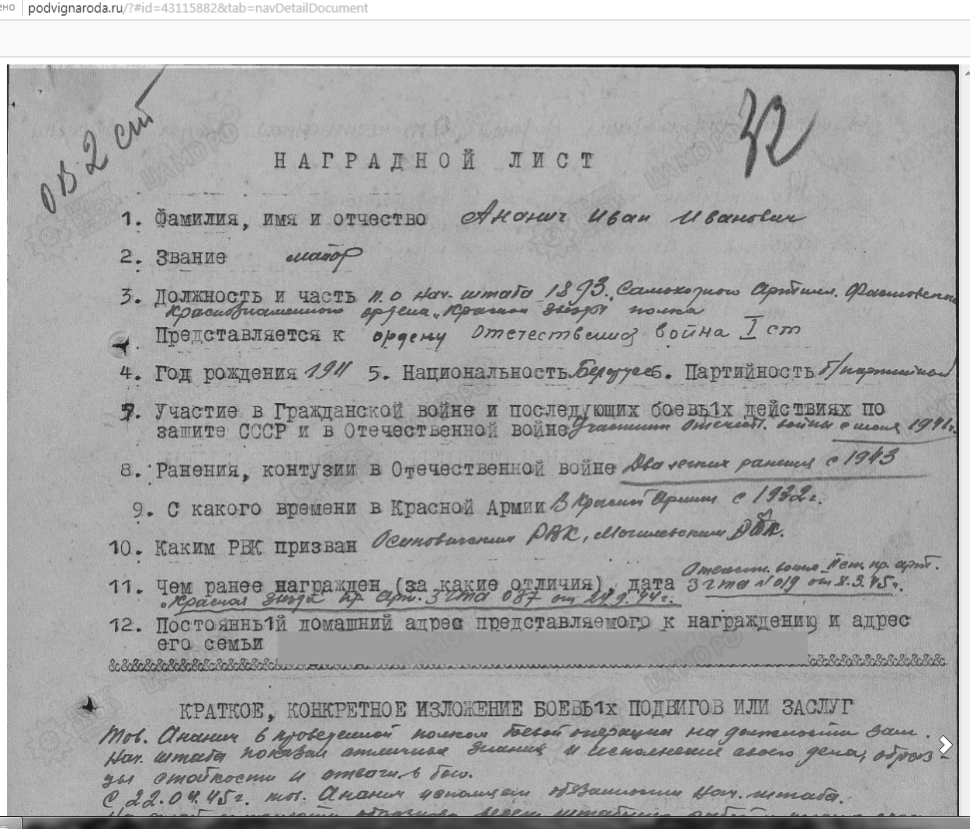 podvignaroda.ru/?#id=43115882&tab=navDetailDocument
ОВ 2 ст
32
НАГРАДНОЙ ЛИСТ
1. Фамилия, имя и отчество Ананич Иван Иванович
2. Звание майор
3. Должность и часть п.о нач. штаба 1893 Самоходно Артилл. Фастовского
Краснознаменного ордена "Красной звезды" полка
Представляется к ордену Отечественная война I ст
4. Год рождения 1911 5. Национальность 6. Партийность б/партийный
7. Участие в Гражданской войне и последующих боевы1х действиях по
защите СССР и в Отечественной войне Участник отечеств. войны с июля 1941г.
8. Ранения, контузии в Отечественной войне Два легких ранения с 1943
9. С какого времени в Красной Армии В Красной Армии с 1932г.
10. Каким РВК призван Осиповичским РВК, Могилевским
Отечеств. война II ст. пр. арт.
11. Чем ранее награжден (за какие отличия), дата 3 гта №019 от 8.3.45г.
"Красная звезда" пр. арт. 3 гта 087 от 9.44г.
12. Постоянны1й домашний адрес представляемого к награждению и адрес
его семьи
КРАТКОЕ, КОНКРЕТНОЕ ИЗЛОЖЕНИЕ БОЕВЫ1х ПОДВИГОВ ИЛИ ЗАСЛУГ
Тов. Ананич в проведенной полком боевой операции на должности Зам.
Нач. штаба показал отличные знания и исполнение своего дела, образ-
цы стойкости и отваги в бою.
С 22.04.45г. тов. Ананич исполняет обязанности Нач. штаба.